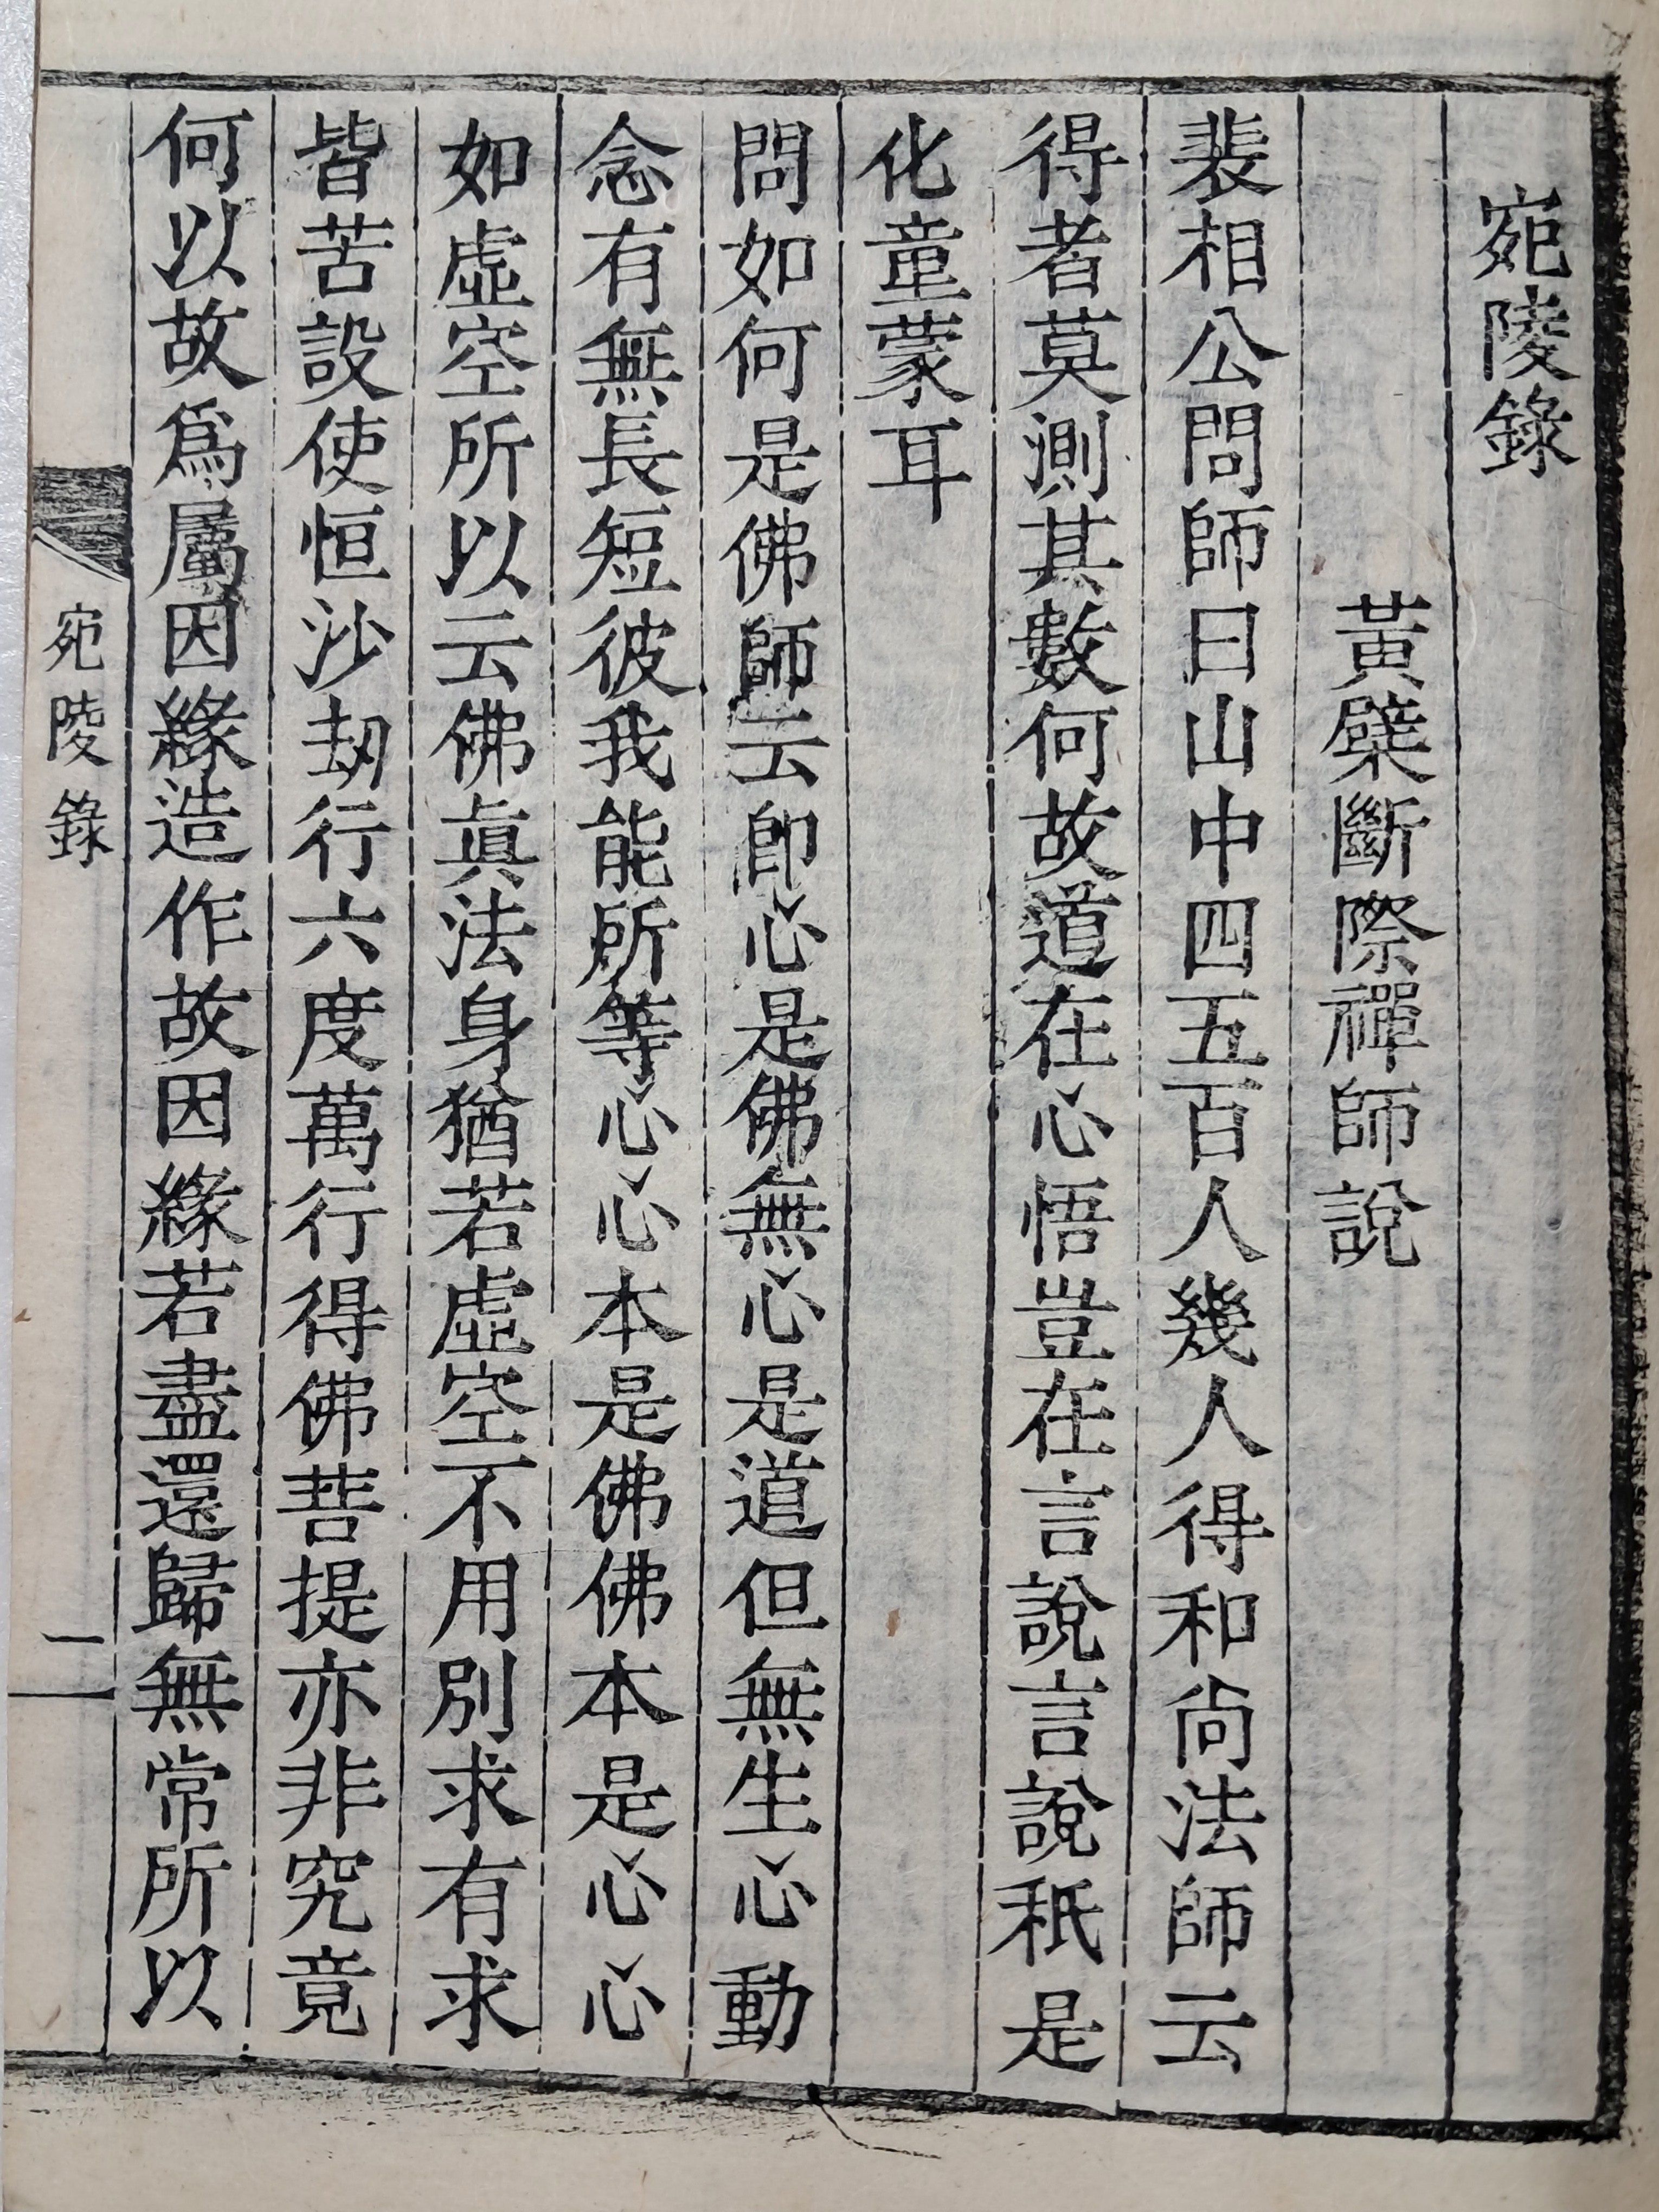 宛陵錄
黃檗斷際禪師說
裴相公問師曰山中四五百人幾人得和尙法師云
得者莫測其數何故道在心悟豈在言說言說秖是
化童蒙耳
問如何是佛師云卽心是佛無心是道但無生心動
念有無長短彼我能所等心心本是佛佛本是心心
如虛空所以云佛眞法身猶若虛空不用別求有求
皆苦設使恒沙劫行六度萬行得佛菩提亦非究竟
何以故爲屬因緣造作故因緣若盡還歸無常所以
宛陵錄
一